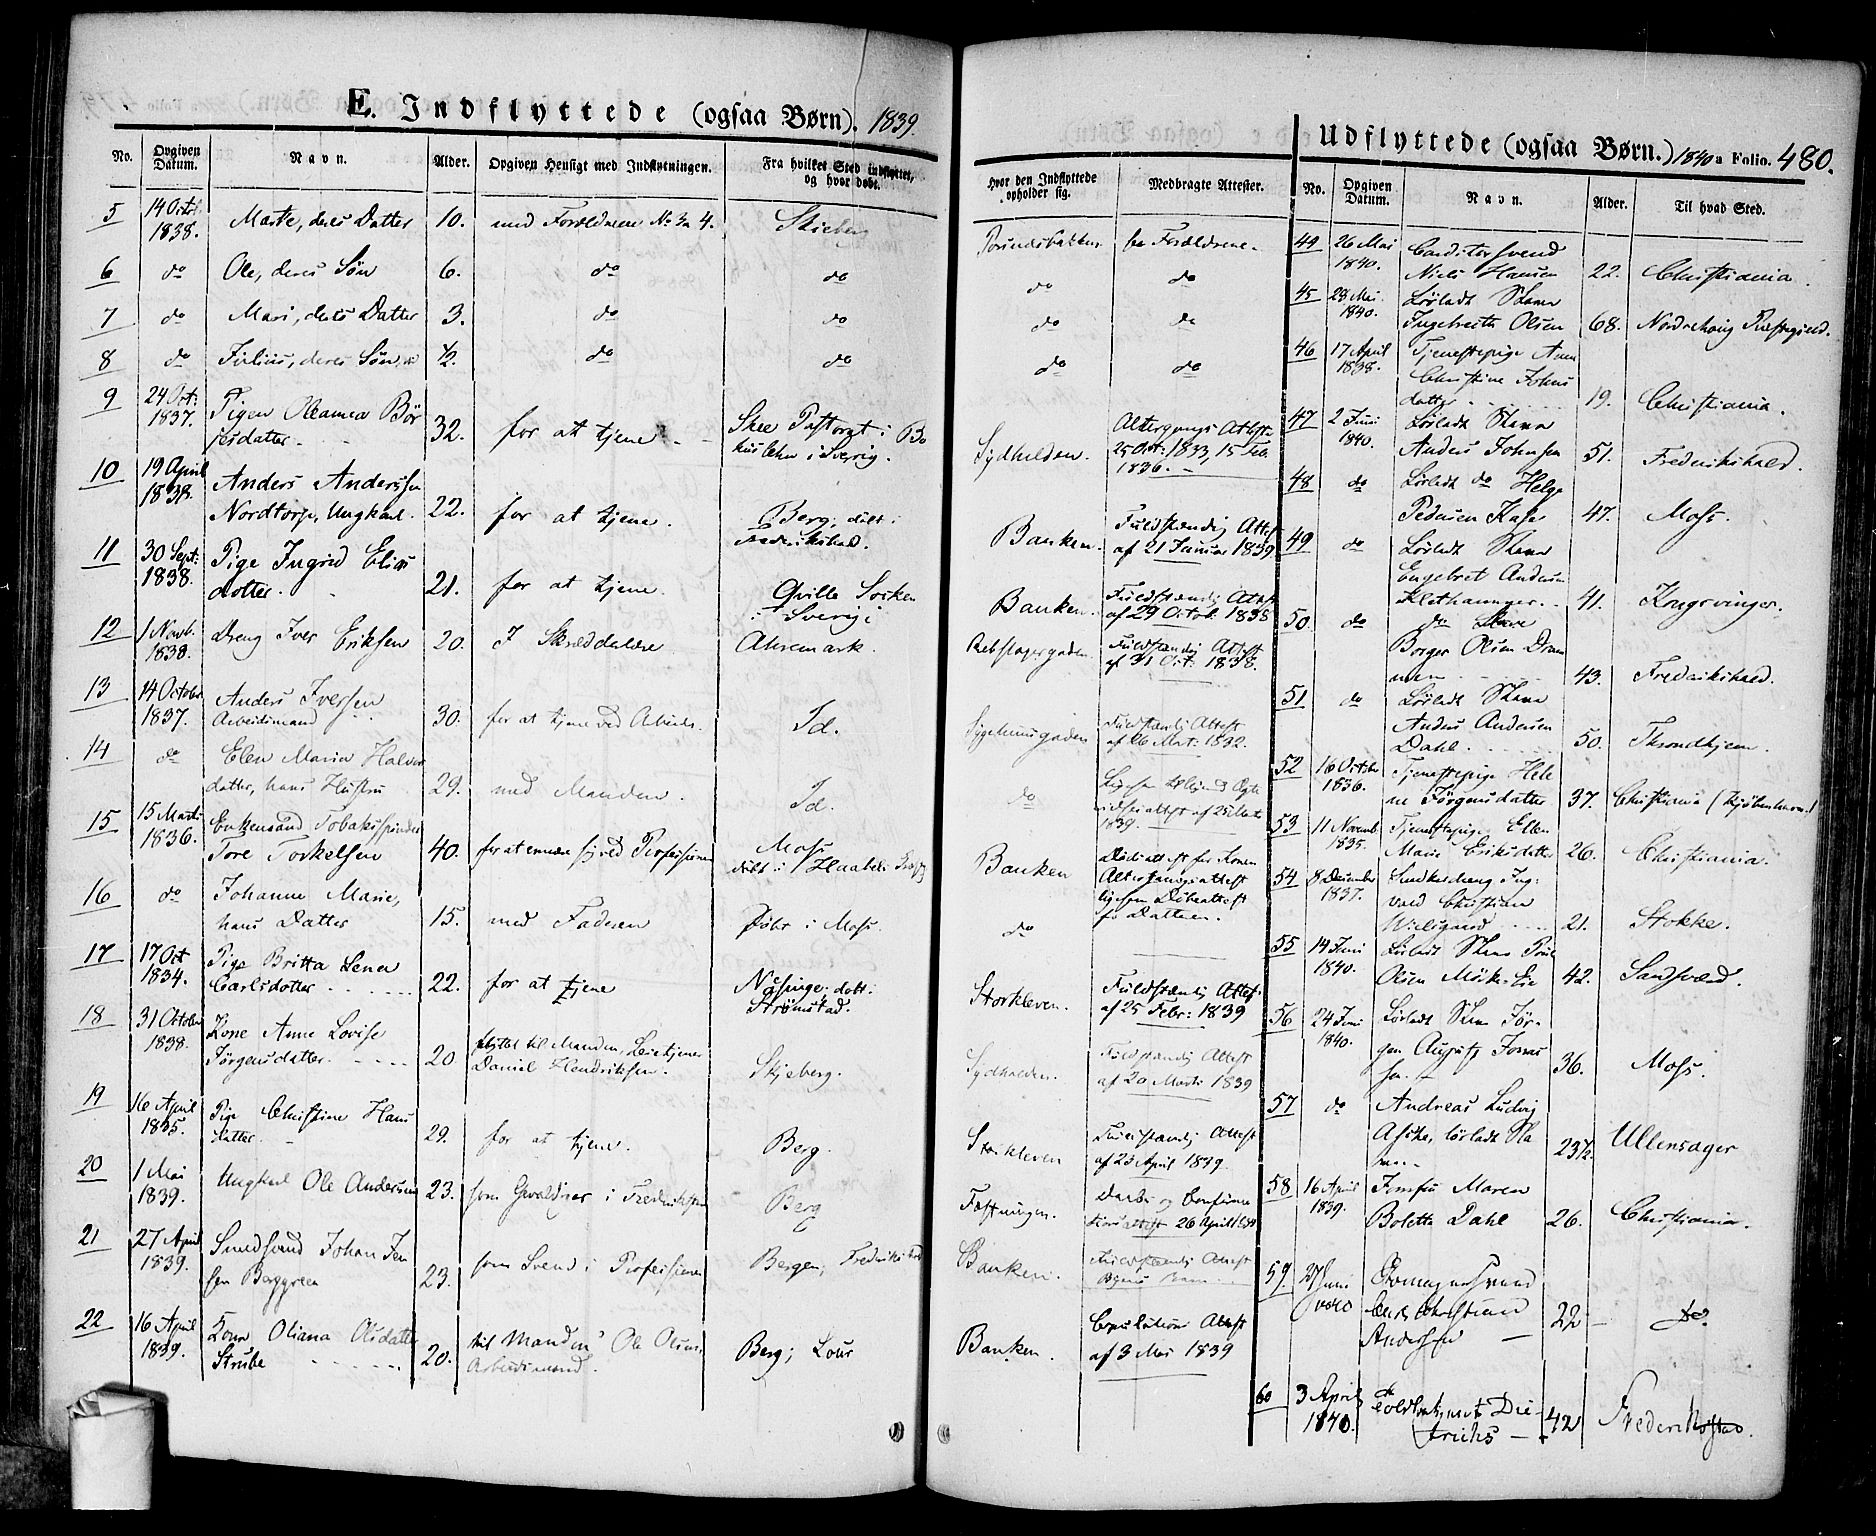 E. Indflyttede (ogsaa Børn). 1839.
No. Opgiven Datum. Navn. Alder. Opgiven Hensigt med Indflytningen. Fra hvilket Sted indflyttet, og hvor døbt.
Hvor den Indflyttede opholder sig. Medbragte Attester.
5 14 Octb. 1838. Marte, deres Datter 10. med Forældrene No 3 4. Skieberg for Forældrene.
6 do Ole, deres Søn 6. do do do do
7 do Mari, deres Datter 3. do do do do
8 do Julius, deres Søn 1/2. do do do do
9 24 Oct: 1837. Pigen Oleamea Bör
jesdatter. 32. for at tjene. Skee Pastorat i Bo
huslehn i Sverig. Sydhalden. Altergangs Attest
25 Oct: 1833, 15 Feb. 1836.
10 19 April 1838. Anders Andersen
Nordtorp, Ungkarl. 22. for at tjene. Berg, døbt i
Frederikshald. Banken. Fuldstændig Attest
af 21 Januar 1839
11 30 Sept: 1838. Pige Ingrid Elias
datter. 21. for at tjene. Qville Socken
i Sverig Banken. Fuldstændig Attest
af 29 Octob. 1838
12 1 Novb. 1838. Dreng Iver Eriksen 20. I Skrædderlære Ahremark. Rebslagergaden. Fuldstændig Attest
af 31 Oct: 1838.
13 14 Octobr 1837. Anders Iversen
Arbeidsmand 30. for at tjene ved Arbeide. Id. Sygehuusgaden Fuldstændig Attest
af 26 Mart: 1832.
14 do Elen Maria Halvor
datter, hans Hustru 29. med Manden. Id. do
1839.
15 15 Marts 1836. Enkemand Tobakspinder
Tore Torkelsen 40. for at ernære sig ved Professionen Moss
døbt i Haabøl Banken Dødsattest for Konen
Altergangsattest
ligesom Døbeattest
for Datteren.
16 do Johanne Marie,
hans Datter 15. med Faderen Føbt i Moss. do
17 17 Oct 1834. Pige Britta Lena
Carlsdatter. 22. for at tjene Nasinge, døbt i
Strømstad. Storkleven Fuldstændig Attest
af 25 Febr: 1839
18 31 Octobr 1838. Kone Anne Lovise
Jørgensdatter. 20 flyttet til Manden, Leietjener
Daniel Hendriksen. Skjeberg. Sydhalden. Fuldstændig Attest
af 20 Marts 1839
19 16 April 1835. Pige Christine Hans
datter. 29. for at tjene. Berg. Storkleven Fuldstændig Attest
af 23 April 1839.
20 1 Mai 1839. Ungkarl Ole Andersen 23. som Gevaldiger i Frederiksten Berg Fæstningen. Daabs og Confirma
tionsattest 26 April 1839
21 27 April 1839. Smedsvend Johan Jen
sen Berggreen 23. som Svend i Professionen Bergen, Frederikshald Banken. Fuldstændig Attest
22 16 April 1839. Kone Oliana Olsdatter
Strube 20. til Manden Ole Olsen
Arbeidsmand. Berg; Lour Banken. Copulations Attest
af 3 Mai 1839
Udflyttede (ogsaa Børn.) 1840 Folio. 480.
No. Opgiven Datum. Navn. Alder. Til hvad Sted.
49 26 Mai 1840. Conditorsvend
Niels Hansen 22. Christiania.
45 28 Mai. 1840. Lösladt Slave
Ingebreth Olsen 68. Nordrehoug Præstegjeld.
46 17 April 1838. Tjenestepige Anne
Christine Johns
datter 19. Christiania.
47 2 Juni 1840. Lösladt Slave
Anders Johnsen 51. Frederikshald.
48 do Lösladt do Helge
Pedersen Kaser 47. Moss.
49 do Lösladt Slave
Engebret Andersen
Klethammer. 41. Kongsvinger.
50. do do Slave
Borger Olsen Dram
men 43. Frederikshald.
51 do Lösladt Slave
Anders Andersen
Dahl. 50. Throndhjem.
52 16 Octobr 1836. Tjenestepige Hele
ne Jörgensdatter 37. Christiania (Kjøbenhavn)
53 11 Novemb 1835. Tjenestepige Ellen
Marie Eriksdatter 26. Christiania.
54 8 December 1837. Snedkerdreng Ing
vald Christian
Wielgaard 21. Stokke.
55 14 Juni 1840. Lösladt Slave Poul
Olsen Mök-Eie 42. Sandsværd.
56 24 Juni 1840. Lösladt Slave Jör
gen August Jonas
sen. 36. Moss.
57 do Andreas Ludvig
Aske, lösladt Sla
ve 23 1/2. Ullensager
58 16 April 1839. Jomfru Maren
Bolette Dahl 26. Christiania.
59. 27 Juni 1840 svend
Carl Christian
Andersen 22 do.
60 3 April 1840. Die
trichs 42 Frederikstad.